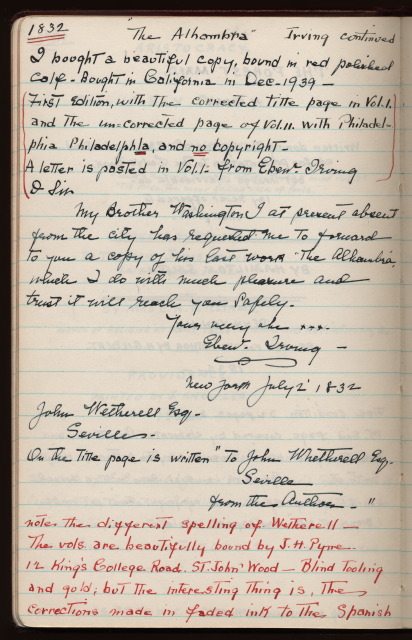 1832 "The Alhambra" Irving continued
I bought a beautiful copy, bound in red polished
calf - Bought in California in Dec - 1939 -
First Edition, with the corrected title page in Vol. I.
and the un=corrected page of Vol. II. with Philadel-
phia Philadelphla, and no copyright -
A letter is pasted in Vol. I - from Eben. Irving
D Sir
My Brother Washington I at present absent
from the city has requested me to forward
to you a copy of his last work "The Alhambra
which I do with much pleasure and
trust it will reach you safely -
Yours very &c xxx.
Eben. Irving -
New York July 2' 1832
John Wetherell Esq -
Seville -
On the title page is written "To John Whetherell Esq -
Seville
from the Author - "
note the different spelling of Wetherell -
The vols. are beautifully bound by J. H. Pyne -
12 King's College Road. St. John' Wood - Blind Tooling
and gold; but the interesting thing is, the
corrections made in faded ink to the Spanish